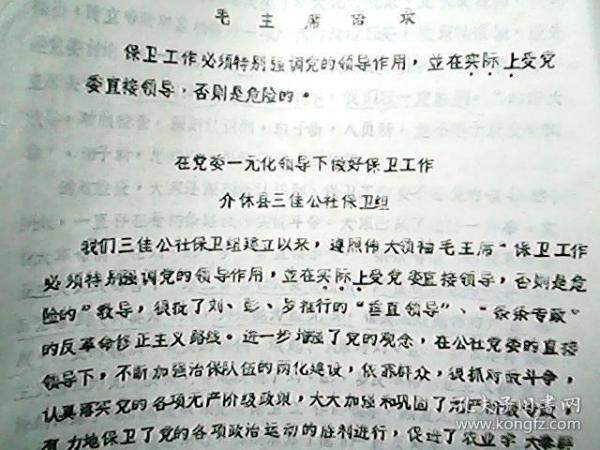 毛主席语录
保卫工作必须特别强调党的领导作用，並在实际上受党
委直接领导，否则是危险的。
在党委一元化领导下做好保卫工作
介休县三佳公社保卫组
我们三佳公社保卫组建立以来，遵照伟大领袖毛主席“保卫工作
必须特别强调党的领导作用，並在实际上受党委直接领导，否则是危
险的”教导，狠批了刘、彭、罗推行的“垂直领导”、“条条专政”
的反革命修正主义路线。进一步增强了党的观念，在公社党委的直接
领导下，不断加强治保队伍的两化建设，依靠群众，狠抓对敌斗争，
认真落实党的各项无产阶级政策，大大加强和巩固了无产阶级专政，
有力地保卫了党的各项政治运动的胜利进行，促进了农业学大寨
孔夫子旧书网
www.kongfz.com